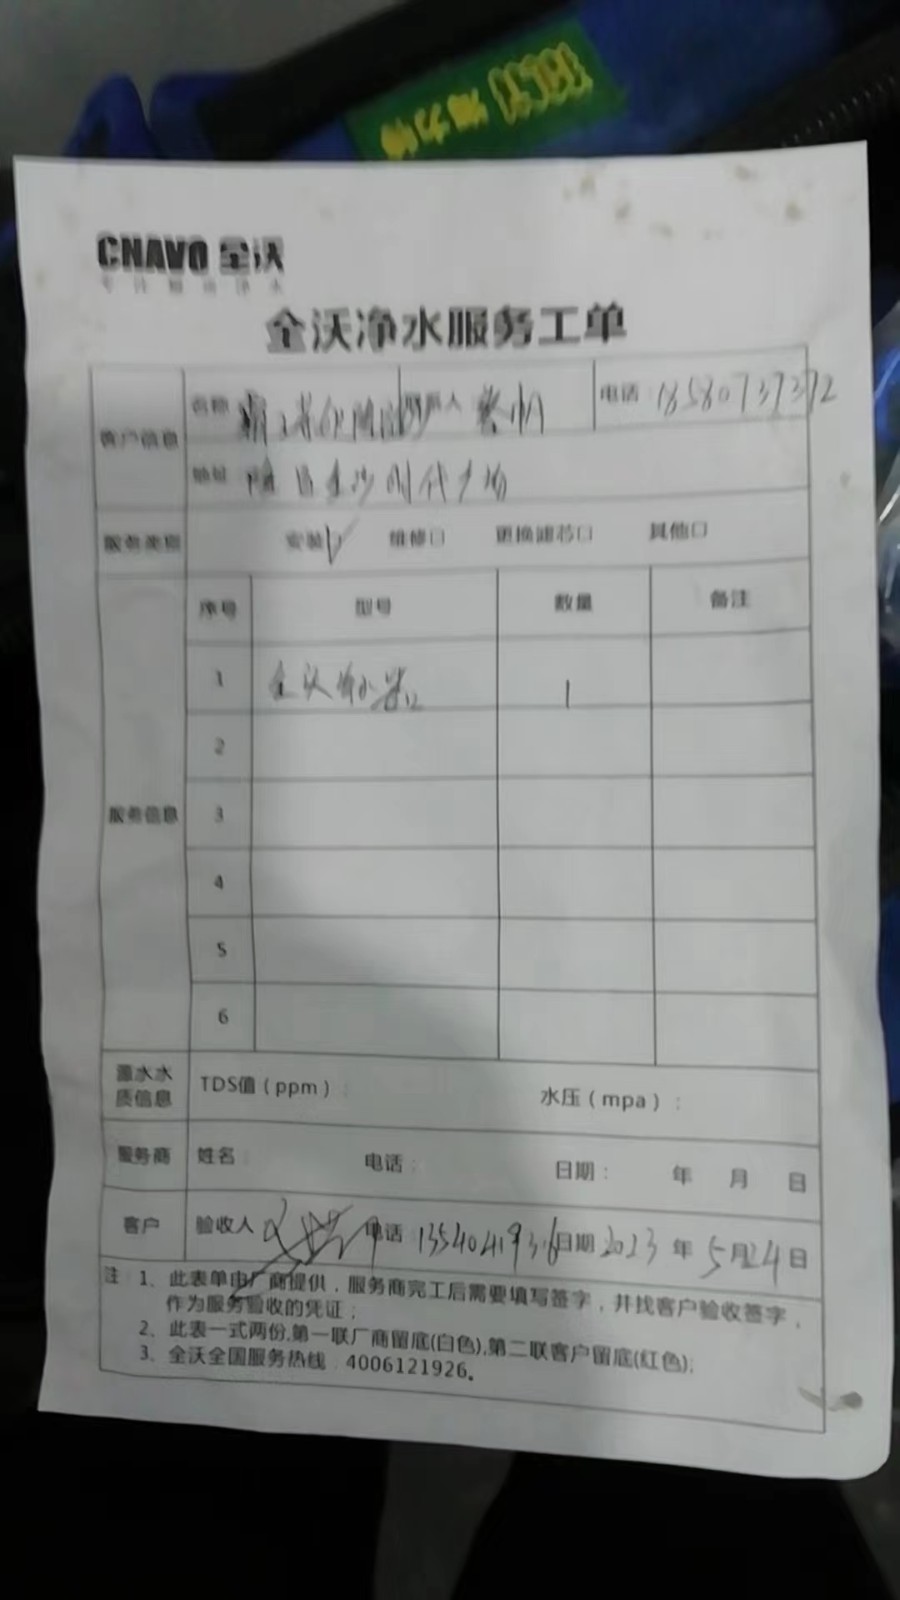 CNAVO 全沃
专注商用净水
全沃净水服务工单
客户信息
名称 联系人 电话 18580737372
地址 金沙时代广场
服务类别 安装√ 维修□ 更换滤芯□ 其他□
服务信息
序号 型号 数量 备注
1 全沃净水器 1
2
3
4
5
6
源水水质信息 TDS值（ppm）： 水压（mpa）：
服务商 姓名： 电话： 日期： 年 月 日
客户 验收人 电话 日期 2023 年 5 月 24 日
注 1、此表单由厂商提供，服务商完工后需要填写签字，并找客户验收签字，
作为服务验收的凭证；
2、此表一式两份,第一联厂商留底(白色),第二联客户留底(红色);
3、全沃全国服务热线：4006121926。